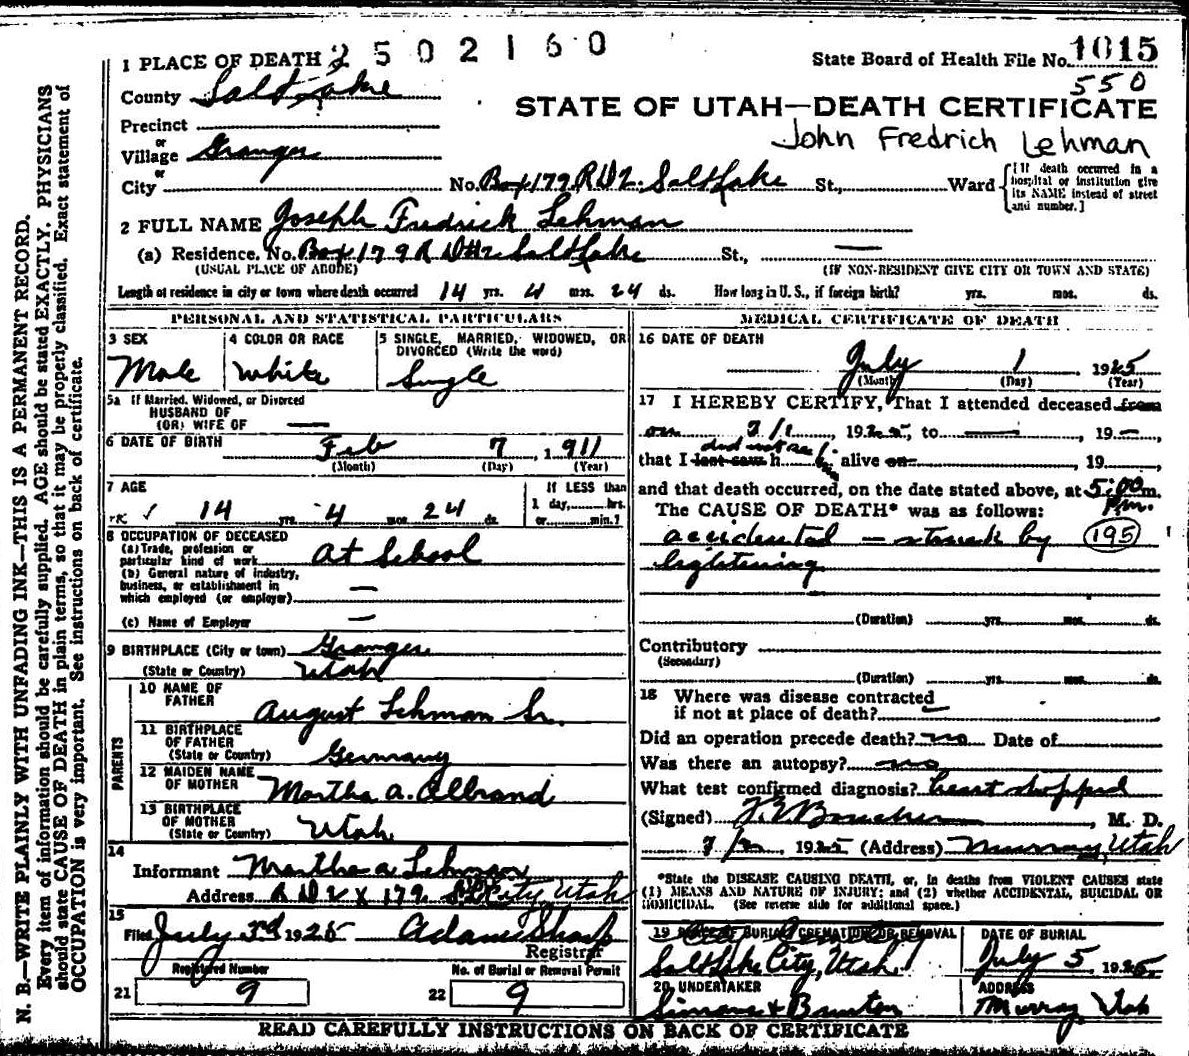 2 5 0 2 1 6 0
State Board of Health File No. 1015
550
1 PLACE OF DEATH
County Salt Lake
STATE OF UTAH—DEATH CERTIFICATE
John Fredrich Lehman
Precinct
or
Village Granger
or
City No. Box 179 R D 2. Salt Lake St., Ward
[If death occurred in a hospital or institution give its NAME instead of street and number.]
2 FULL NAME Joseph Fredrick Lehman
(a) Residence. No. Box 179 R D #2 Salt Lake St.,
(USUAL PLACE OF ABODE) (IF NON-RESIDENT GIVE CITY OR TOWN AND STATE)
Length of residence in city or town where death occurred 14 yrs. 4 mos. 24 ds. How long in U. S., if foreign birth? yrs. mos. ds.
PERSONAL AND STATISTICAL PARTICULARS
3 SEX
Male
4 COLOR OR RACE
White
5 SINGLE, MARRIED, WIDOWED, OR
DIVORCED (Write the word)
Single
5a If Married, Widowed, or Divorced
HUSBAND OF
(OR) WIFE OF —
6 DATE OF BIRTH Feb 7, 1911
(Month) (Day) (Year)
7 AGE
14 yrs. 4 mos. 24 ds.
If LESS than
1 day, hrs.
or min.?
8 OCCUPATION OF DECEASED
(a) Trade, profession or
particular kind of work At School
(b) General nature of industry,
business, or establishment in
which employed (or employer) —
(c) Name of Employer —
9 BIRTHPLACE (City or town) Granger
(State or Country) Utah
PARENTS
10 NAME OF
FATHER August Lehman Sr.
11 BIRTHPLACE
OF FATHER
(State or Country) Germany
12 MAIDEN NAME
OF MOTHER Martha A. Albrand
13 BIRTHPLACE
OF MOTHER
(State or Country) Utah
14
Informant Martha A Lehman
Address R D 2 X 179 S L City, Utah
15
Filed July 3rd 1925 Adam Sharp
Registrar
Registered Number
21 9
No. of Burial or Removal Permit
22 9
MEDICAL CERTIFICATE OF DEATH
16 DATE OF DEATH
July 1 1925
(Month) (Day) (Year)
17 I HEREBY CERTIFY, That I attended deceased from
on 7/1, 1925, to —, 19—
did not see
that I last saw h alive on , 19
and that death occurred, on the date stated above, at 5:00 m.
P.m.
The CAUSE OF DEATH* was as follows:
accidental — struck by 195
lightening
(Duration) yrs. mos. ds.
Contributory
(Secondary)
(Duration) yrs. mos. ds.
18 Where was disease contracted
if not at place of death?
Did an operation precede death? no Date of
Was there an autopsy? no
What test confirmed diagnosis? heart stopped
(Signed) , M. D.
1925 (Address) Murray, Utah
*State the DISEASE CAUSING DEATH, or, in deaths from VIOLENT CAUSES state
(1) MEANS AND NATURE OF INJURY; and (2) whether ACCIDENTAL, SUICIDAL OR
HOMICIDAL. (See reverse side for additional space.)
19 PLACE OF BURIAL CREMATION OR REMOVAL
City Cemetery
Salt Lake City, Utah
DATE OF BURIAL
July 5, 1925
20 UNDERTAKER
ADDRESS
Murray, Utah
READ CAREFULLY INSTRUCTIONS ON BACK OF CERTIFICATE
N. B.—WRITE PLAINLY WITH UNFADING INK—THIS IS A PERMANENT RECORD.
Every item of information should be carefully supplied. AGE should be stated EXACTLY. PHYSICIANS
should state CAUSE OF DEATH in plain terms, so that it may be properly classified. Exact statement of
OCCUPATION is very important. See instructions on back of certificate.